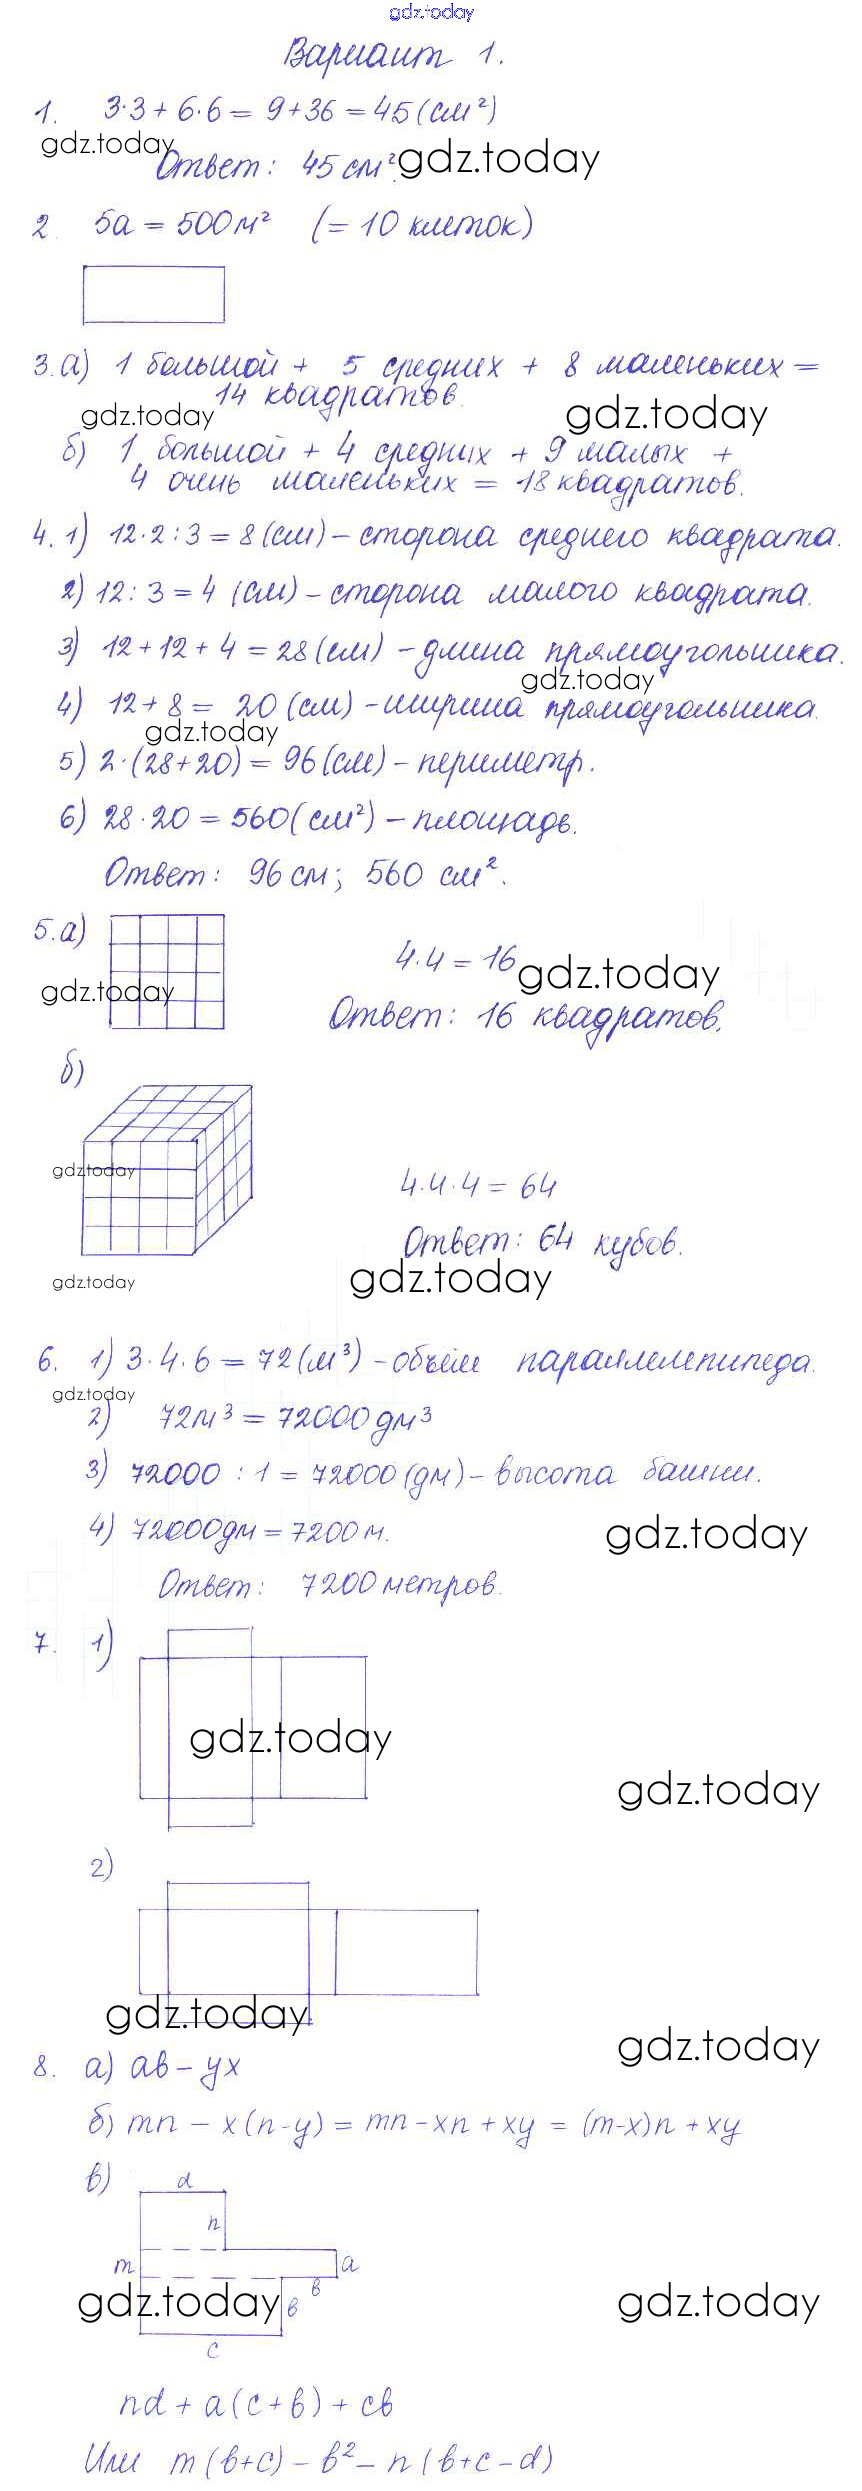 gdz.today
Вариант 1.
1. 3·3 + 6·6 = 9+36 = 45 (см²)
gdz.today
Ответ: 45 см².
gdz.today
2. 5а = 500м² (= 10 клеток)
3. а) 1 большой + 5 средних + 8 маленьких =
14 квадратов.
gdz.today
gdz.today
б) 1 большой + 4 средних + 9 малых +
4 очень маленьких = 18 квадратов.
4. 1) 12·2:3 = 8 (см) – сторона среднего квадрата.
2) 12:3 = 4 (см) – сторона малого квадрата.
3) 12+12+4 = 28 (см) – длина прямоугольника.
gdz.today
4) 12+8 = 20 (см) – ширина прямоугольника.
gdz.today
5) 2·(28+20) = 96 (см) – периметр.
6) 28·20 = 560 (см²) – площадь.
Ответ: 96 см; 560 см².
5. а)
4·4 = 16
gdz.today
gdz.today
Ответ: 16 квадратов.
б)
gdz.today
4·4·4 = 64
Ответ: 64 кубов.
gdz.today
gdz.today
6. 1) 3·4·6 = 72 (м³) – объём параллелепипеда.
gdz.today
2) 72м³ = 72000дм³
3) 72000 : 1 = 72000 (дм) – высота башни.
4) 72000дм = 7200м.
gdz.today
Ответ: 7200 метров.
7. 1)
gdz.today
gdz.today
2)
gdz.today
gdz.today
8. а) ab – yx
б) mn – x(n-y) = mn – xn + xy = (m-x)n + xy
в)
d
n
m
a
в
gdz.today
в
gdz.today
c
nd + a(c+в) + cв
Или m(в+c) – в² – n(в+c-d)